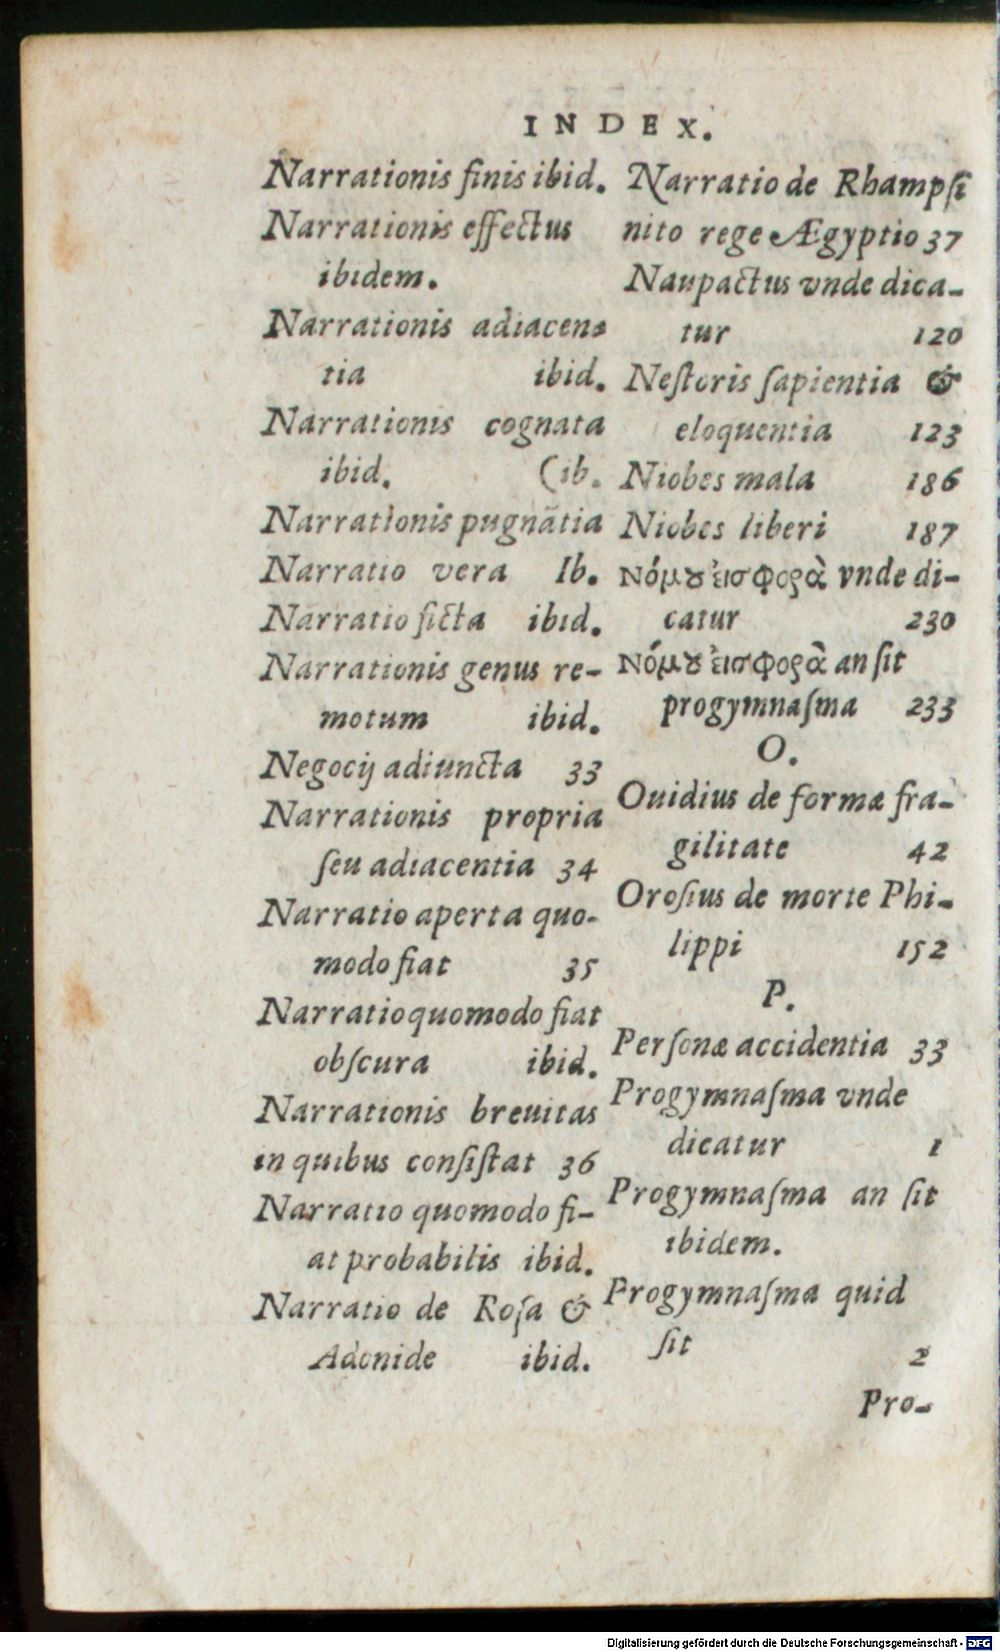 INDEX.
Narrationis finis ibid.
Narrationis effectus
ibidem.
Narrationis adiacen-
tia ibid.
Narrationis cognata
ibid. (ib.
Narrationis pugnātia
Narratio vera Ib.
Narratio ficta ibid.
Narrationis genus re-
motum ibid.
Negocij adiuncta 33
Narrationis propria
ſeu adiacentia 34
Narratio aperta quo-
modo fiat 35
Narratio quomodo fiat
obſcura ibid.
Narrationis breuitas
in quibus conſiſtat 36
Narratio quomodo fi-
at probabilis ibid.
Narratio de Roſa &
Adonide ibid.
Narratio de Rhampſi
nito rege Ægyptio 37
Naupactus vnde dica-
tur 120
Neſtoris ſapientia &
eloquentia 123
Niobes mala 186
Niobes liberi 187
Νόμȣ εἰσφορὰ vnde di-
catur 230
Νόμȣ εἰσφορὰ an ſit
progymnaſma 233
O.
Ouidius de formæ fra-
gilitate 42
Oroſius de morte Phi-
lippi 152
P.
Perſonæ accidentia 33
Progymnaſma vnde
dicatur 1
Progymnaſma an ſit
ibidem.
Progymnaſma quid
ſit 2
Pro-
Digitalisierung gefördert durch die Deutsche Forschungsgemeinschaft - DFG